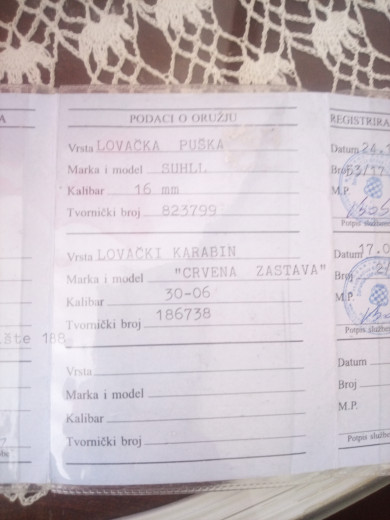 PODACI O ORUŽJU
Vrsta LOVAČKA PUŠKA
Marka i model SUHLL
Kalibar 16 mm
Tvornički broj 823799
Vrsta LOVAČKI KARABIN
Marka i model "CRVENA ZASTAVA"
Kalibar 30-06
Tvornički broj 186738
Vrsta
Marka i model
Kalibar
Tvornički broj
A
188
REGISTRIRA
Datum
Broj
M.P.
Potpis
Datum 17.0
Broj
M.P.
Potpis službe
Datum
Broj
M.P.
Potpis službe